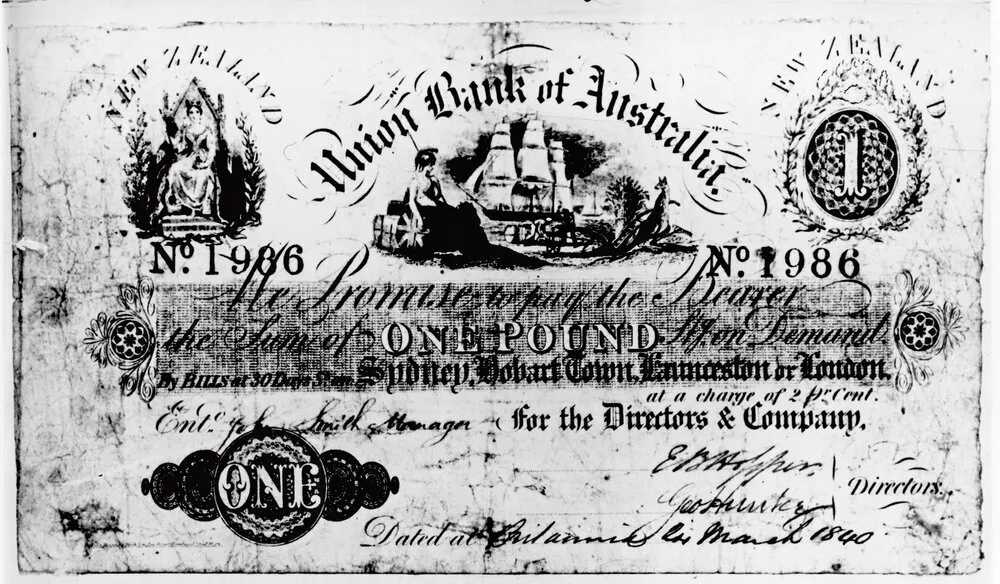 NEW ZEALAND
Union Bank of Australia.
NEW ZEALAND
1
No. 1986
No. 1986
We Promise to pay the Bearer
the Sum of ONE POUND Stg. on Demand.
By BILLS at 30 Days Sight on Sydney, Hobart Town, Launceston or London.
at a charge of 2 pr. Cent.
Entd. John Smith Manager For the Directors & Company,
ONE
Directors.
Dated at Britannia March 1840